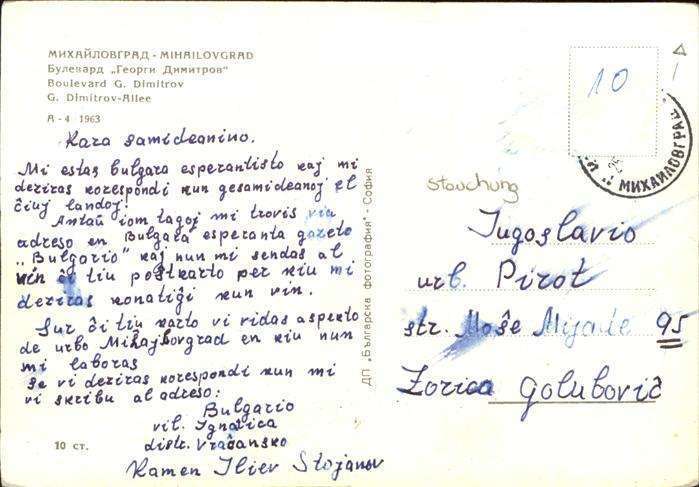 МИХАЙЛОВГРАД - MIHAILOVGRAD
Булевард „Георги Димитров"
Boulevard G. Dimitrov
G. Dimitrov-Allee
А - 4 1963
Kara samideanino.
Mi estas bulgara esperantisto kaj mi
deziras korespondi kun gesamideanoj el
ĉiuj landoj!
Antaŭ iom tagoj mi trovis vian
adreso en Bulgara esperanta gazeto
„Bulgario" kaj nun mi sendas al
vin ĉi tiu postkarto per kiu mi
deziras konatiĝi kun vin.
Sur ĉi tiu karto vi vidas aspekto
de urbo Mihajlovgrad en kiu nun
mi laboras
Se vi deziras korespondi kun mi
vi skribu al adreso:
Bulgario
vil. Ignatica
distr. Vračansko
Kamen Iliev Stojanov
10 ст.
ДП „Българска фотография" - София
10
МИХАЙЛОВГРАД
stouchung
Jugoslavio
urb. Pirot
str. Moŝe Mijade 95
Zorica Golubovič